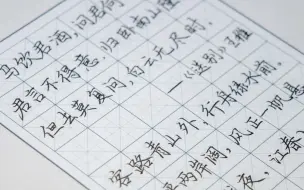 马饮君酒，问君何
君言不得意，归卧南山陲
但去莫复问，白云无尽时。
——《送别》王维
客路青山外，行舟绿水前。
两岸阔，风正一帆悬
夜，江春